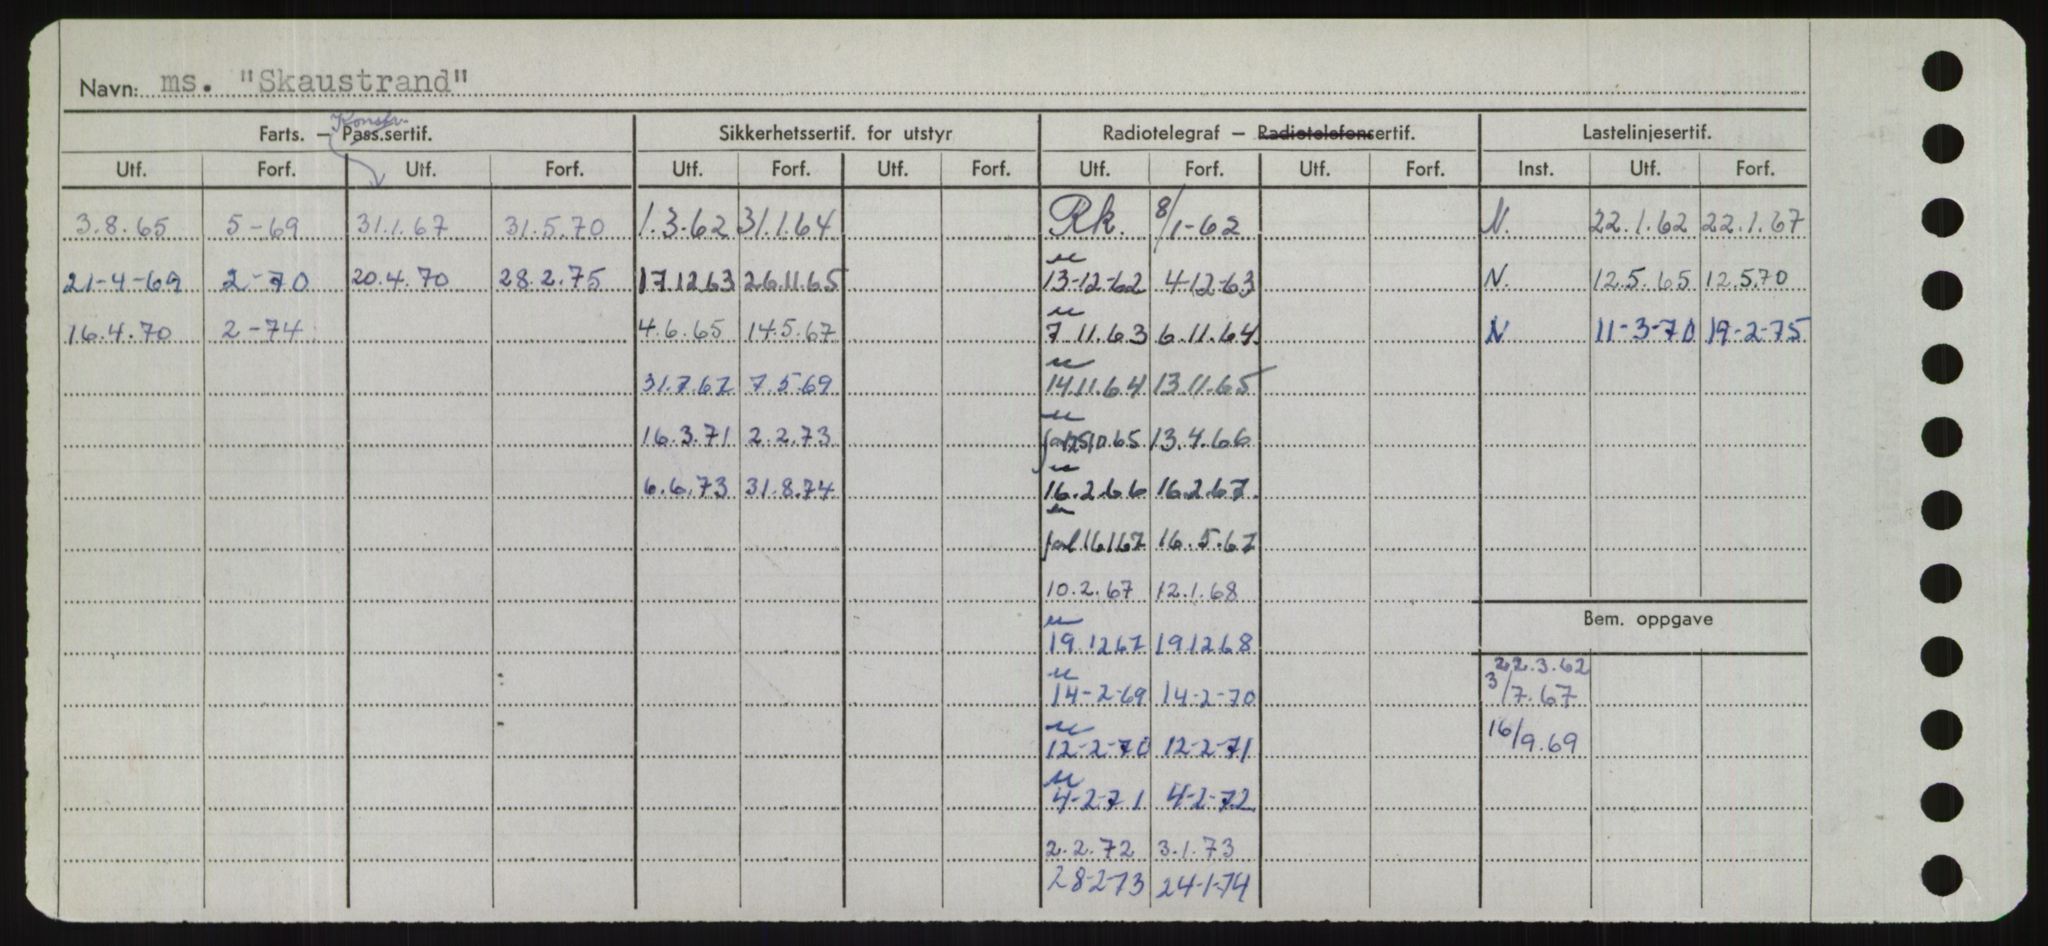 Navn: ms. "Skaustrand"
Konstr.
Farts. — Pass.sertif. Sikkerhetssertif. for utstyr Radiotelegraf — Radiotelefonsertif. Lastelinjesertif.
Utf. Forf. Utf. Forf. Utf. Forf. Utf. Forf. Utf. Forf. Utf. Forf. Inst. Utf. Forf.
3.8.65 5-69 31.1.67 31.5.70 1.3.62 31.1.64 Rk. 8/1-62 N. 22.1.62 22.1.67
21-4-69 2-70 20.4.70 28.2.75 17.12.63 26.11.65 13-12-62 4-12-63 N. 12.5.65 12.5.70
16.4.70 2-74 4.6.65 14.5.67 7.11.63 6.11.64 N 11-3-70 19-2-75
31.7.67 7.5-69 14.11.64 13.11.65
16.3.71 2.2.73 13.4.66
6.6.73 31.8.74 16.2.66 16.2.67.
16.5.67
10.2.67 12.1.68
Bem. oppgave
19.12.67 19.12.68
22.3.62
14-2-69 14-2-70 3/7.67
12-2-70 12-2-71 16/9.69
4-2-71 4-2-72
2.2.72 3.1.73
28-2-73 24-1-74